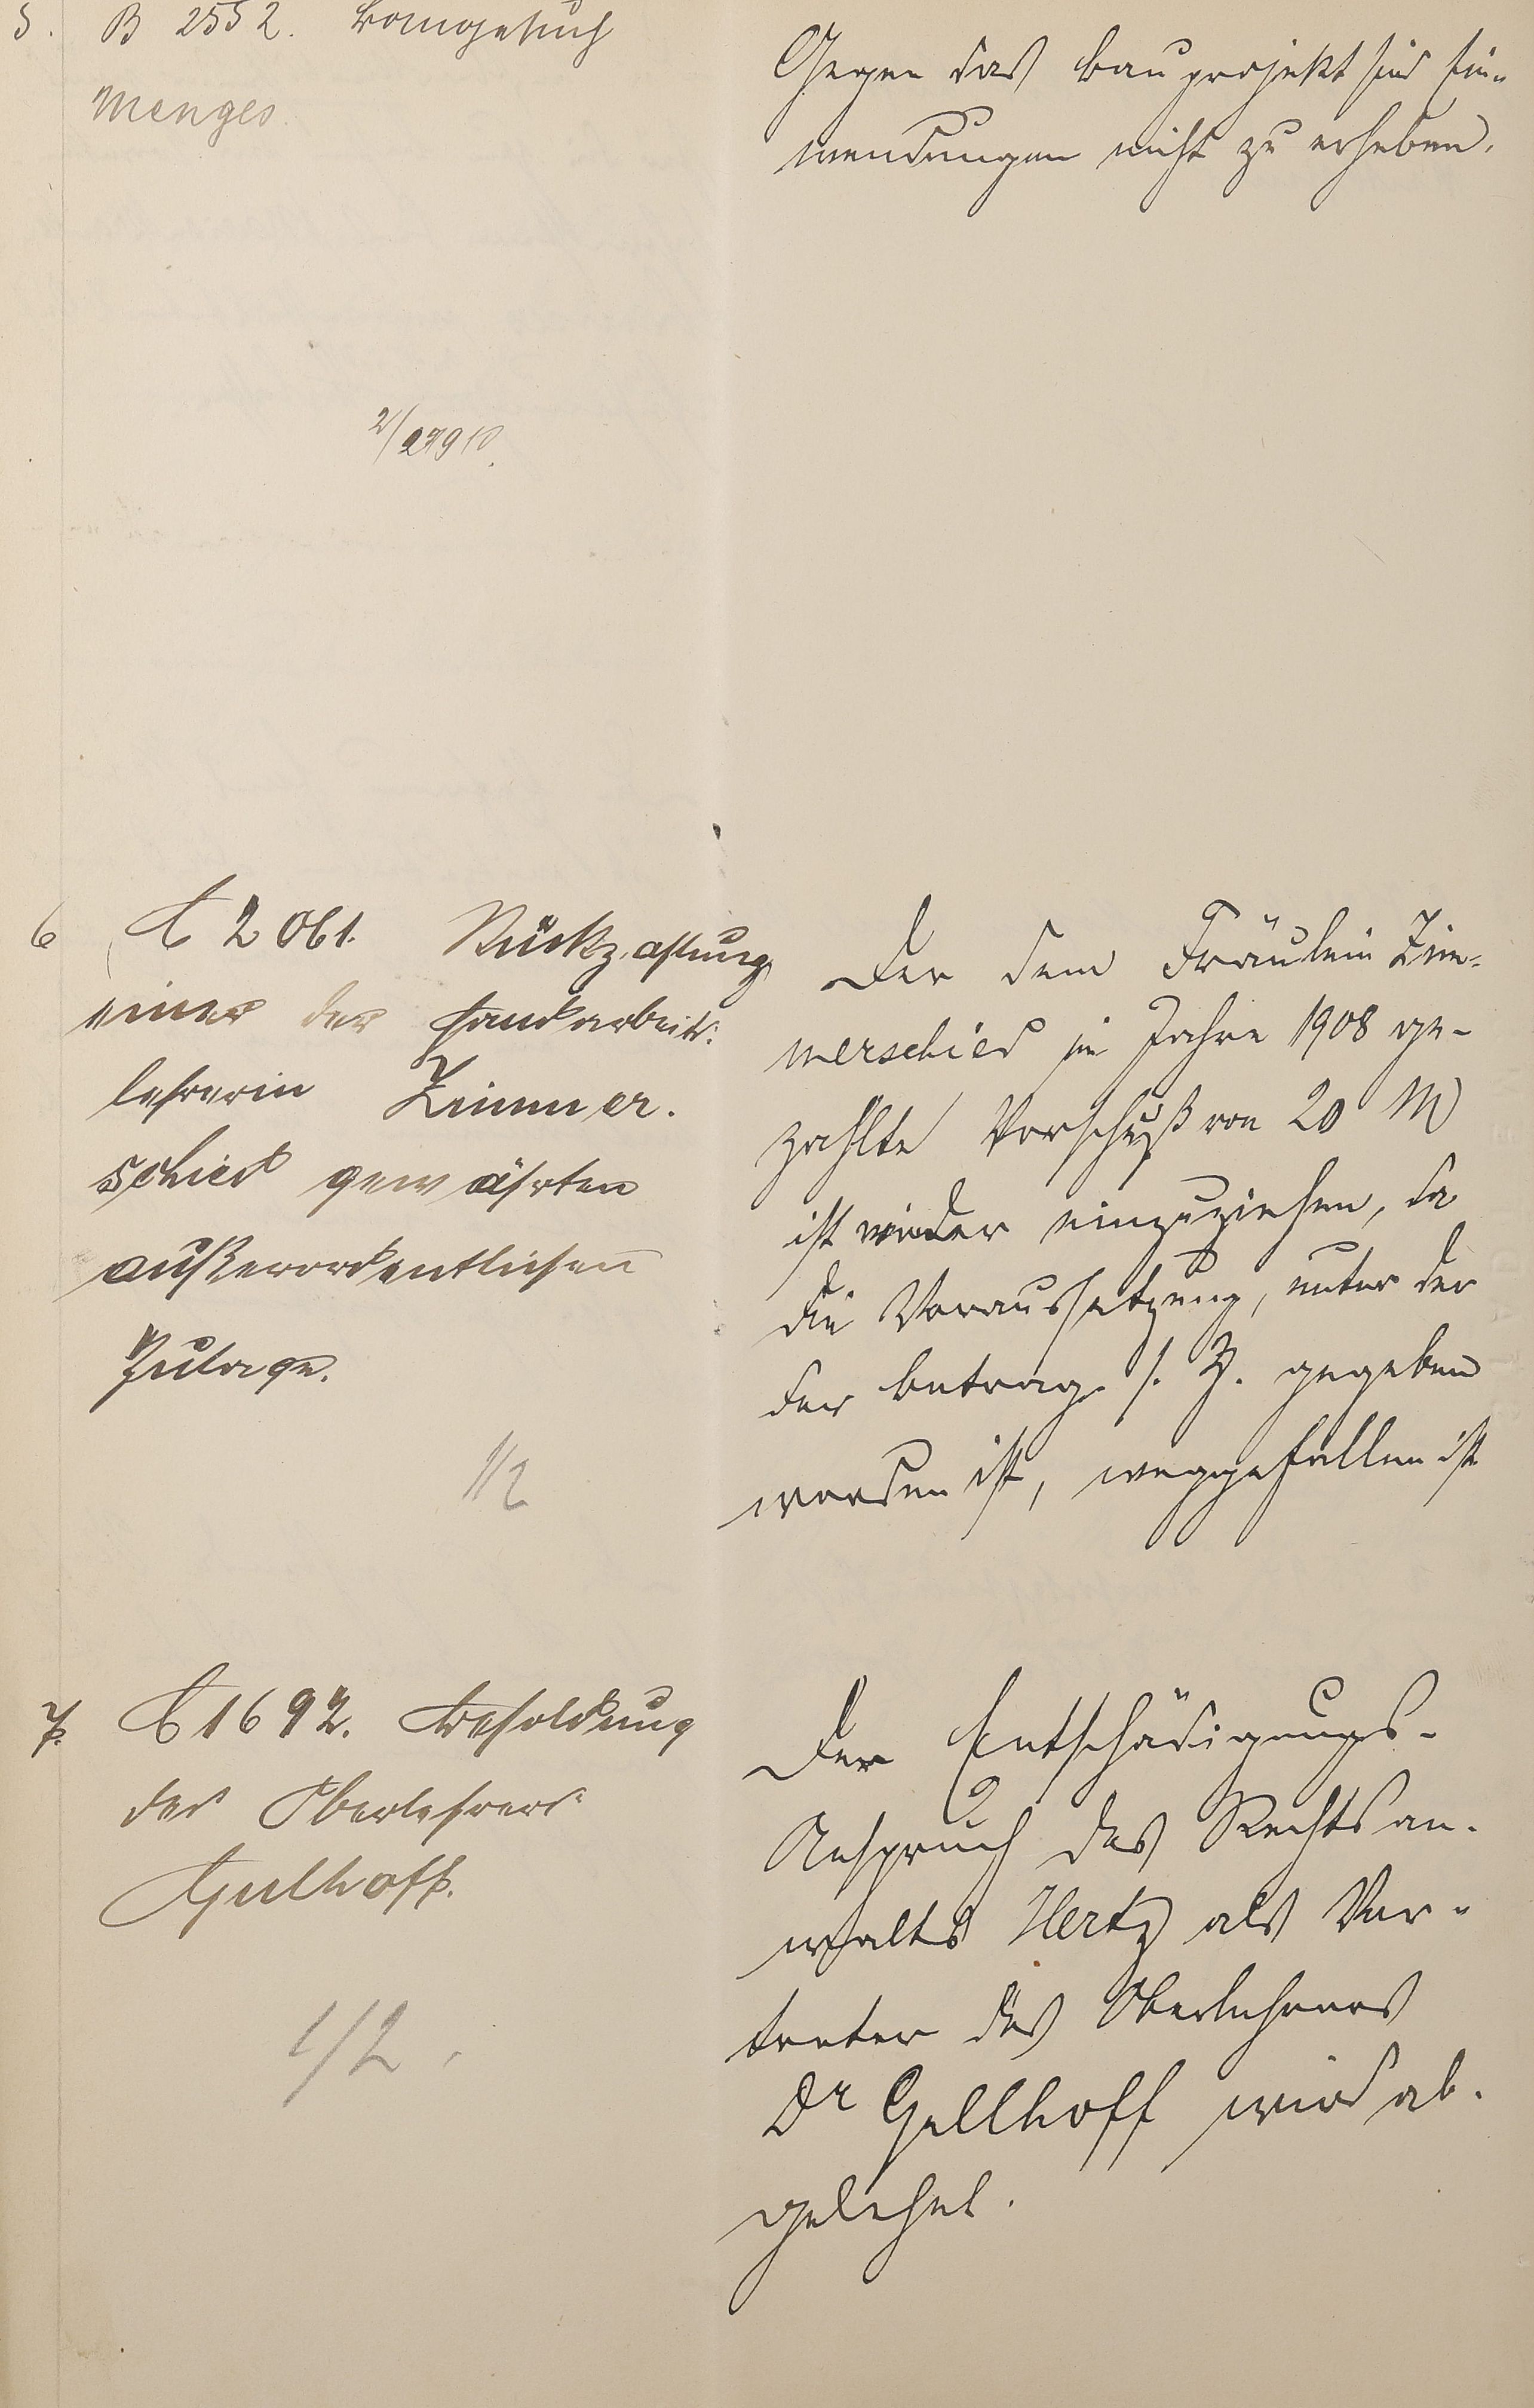 5. B 2552. Baugesuch
Menges.
Gegen das Bauprojekt sind Ein-
wendungen nicht zu erheben.
6 C 2061. Rückzahlung
einer der Handarbeits-
lehrerin Zimmer-
schied gewährten
außerordentlichen
Zulage.
1/2
Der dem Fräulein Zim-
merschied im Jahre 1908 ge-
zahlte Vorschuß von 20 M
ist wieder einzuziehen, da
die Voraussetzung, unter der
der Betrag s. Z. gegeben
worden ist, weggefallen ist
7. C 1692. Besoldung
des Oberlehrers
Gellhoff.
1/2.
Der Entschädigungs-
Anspruch des Rechtsan-
walts Hertz als Ver-
treter des Oberlehrers
Dr Gellhoff wird ab-
gelehnt.